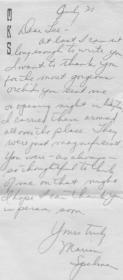 MKS
July 21
Dear Lee -
At last I can sit
long enough to write you
I want to thank you
for the most gorgeous
orchids you sent me
on opening night in
I carried them around
all over the place. They
were just magnificent
You were - as always -
so thoughtful to think
of me on that night
I hope I can thank you
in person soon
Yours truly
Marion